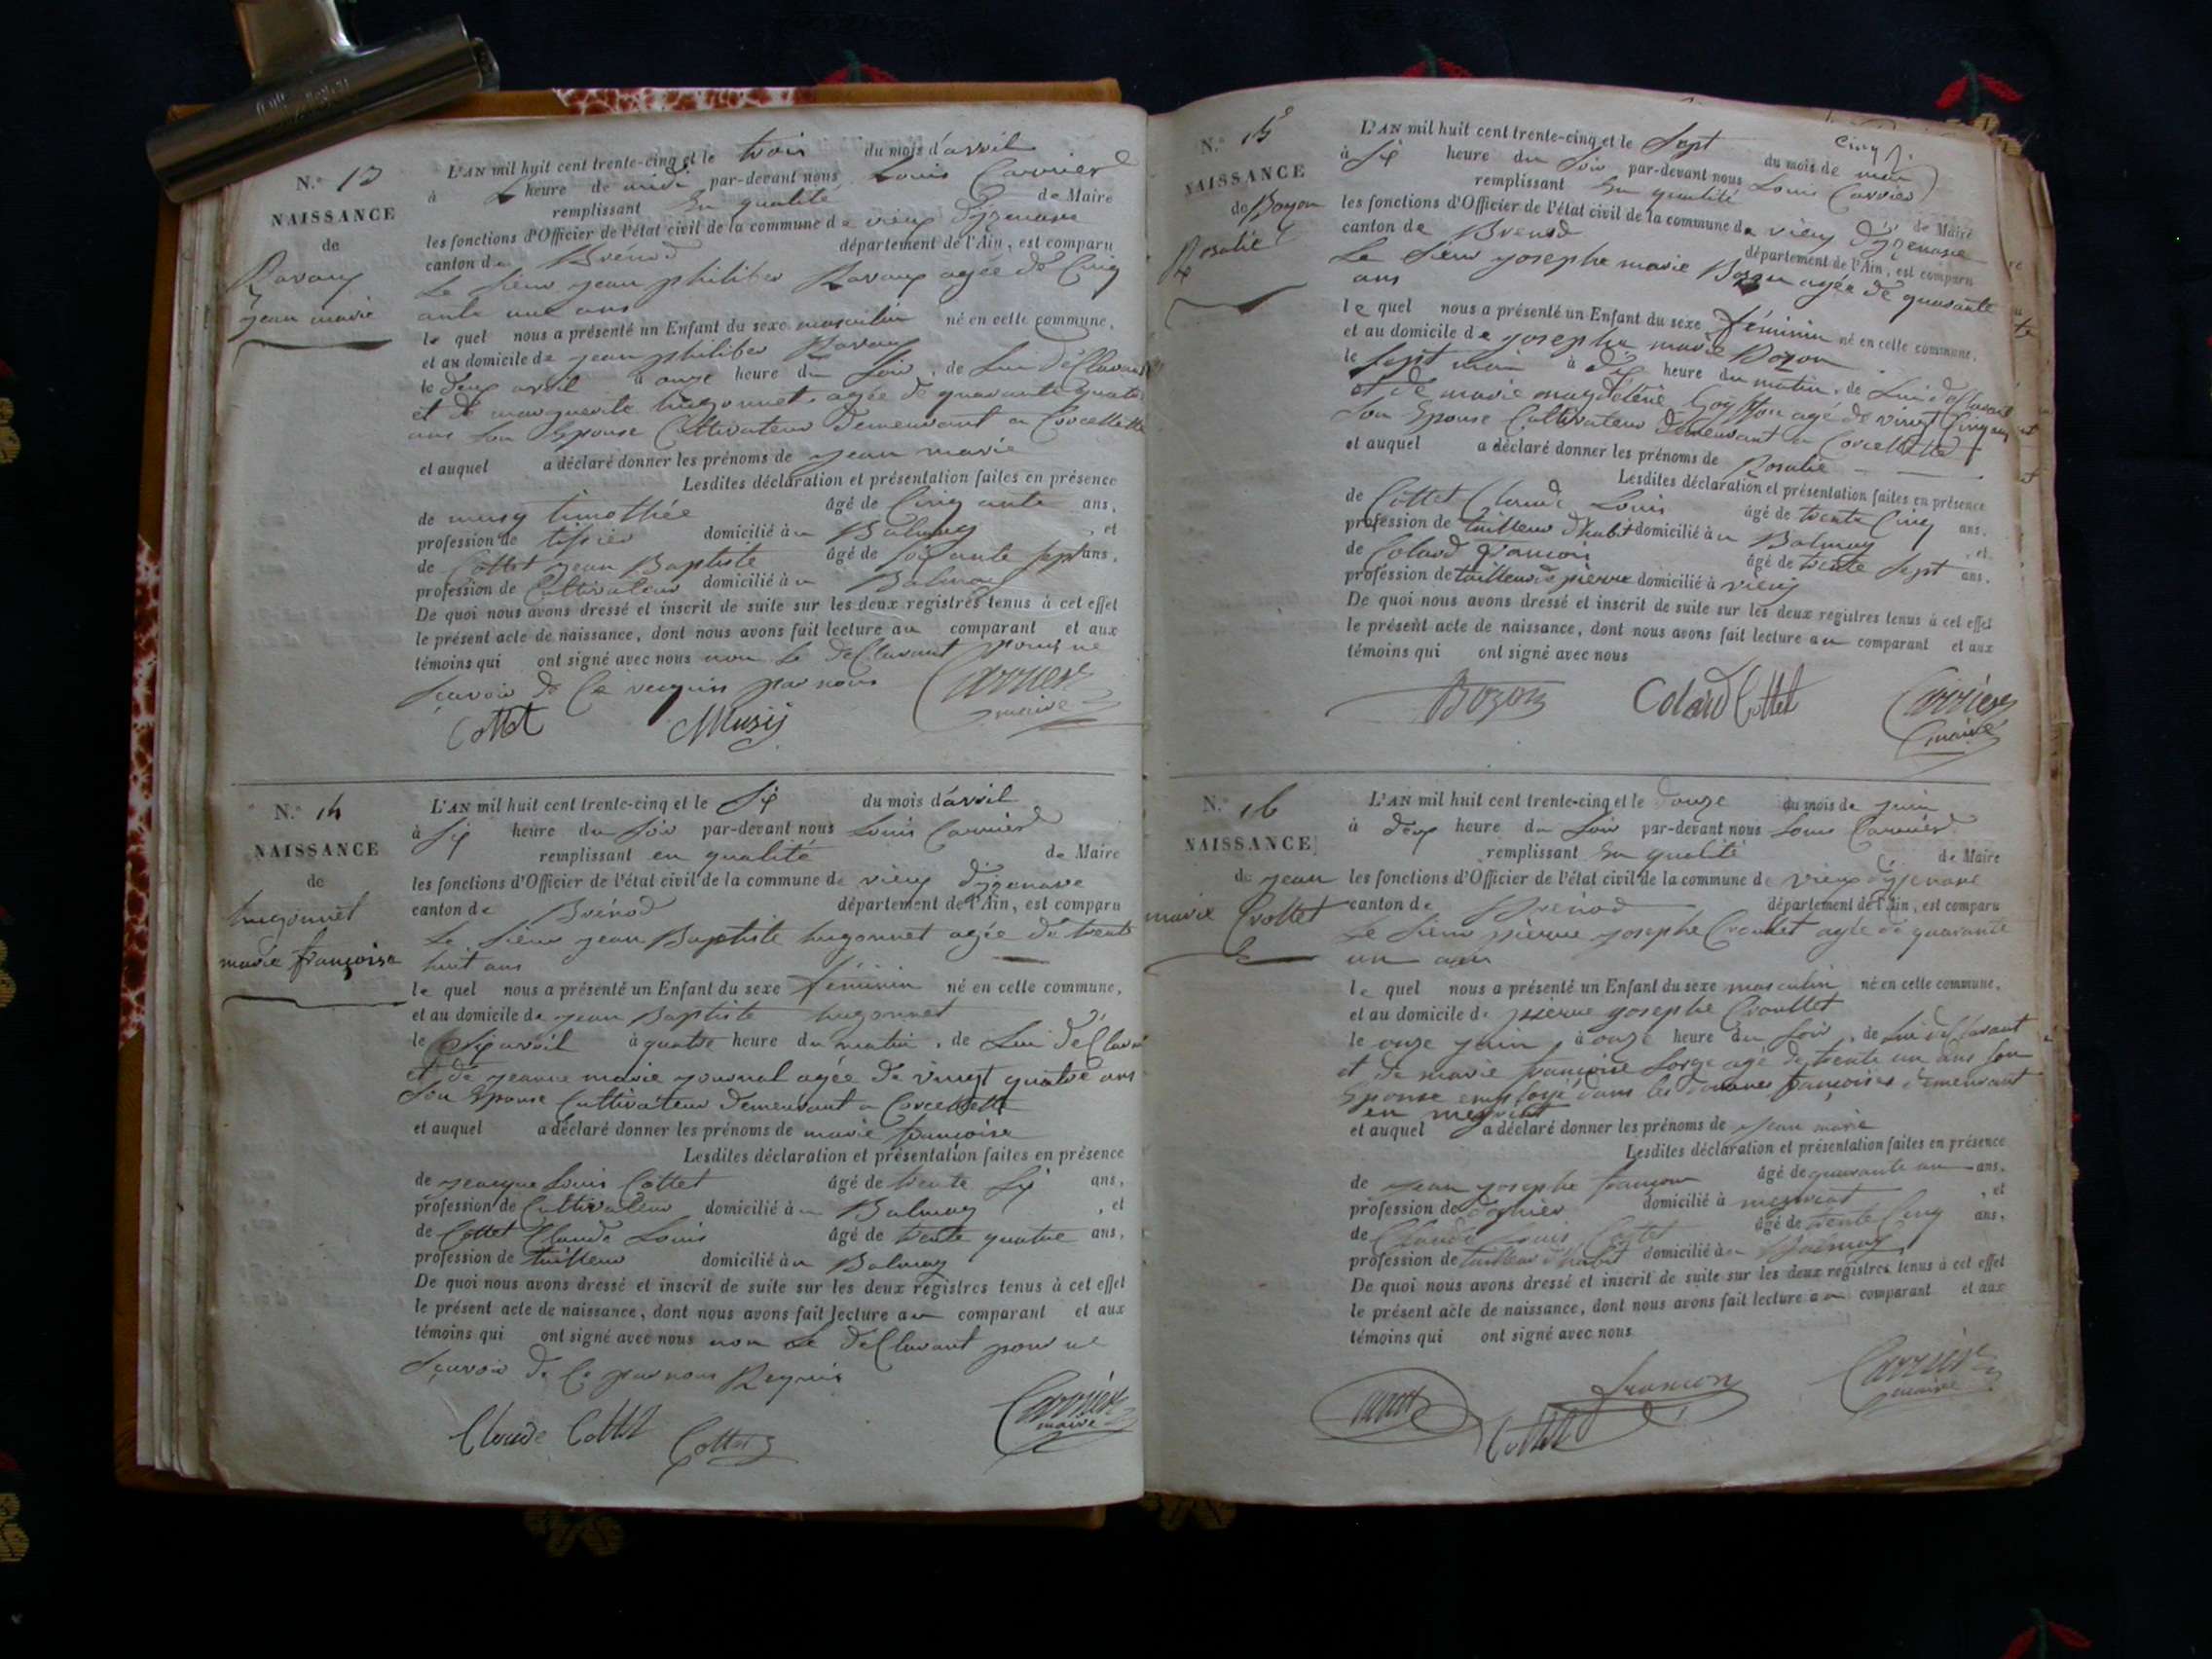 N.° 13
NAISSANCE
de
Ravaux
Jean marie
L'AN mil huit cent trente-cinq et le trois du mois d'avril
à heure de midi par-devant nous Louis Carrier
remplissant En qualité de Maire
les fonctions d'Officier de l'état civil de la commune de vieux d'yzenave
canton de Brénod département de l'Ain, est comparu
Le sieur jean philiber Ravaux agée de Cinq
ante une ans
le quel nous a présenté un Enfant du sexe masculin né en cette commune,
et au domicile de jean philiber Ravaux
le deux avril à onze heure du soir, de Lui déClarant
et de marguerite hugonnet agée de quarante quatre
ans son Epouse Cultivateur demeurant a Corcellette
et auquel a déclaré donner les prénoms de jean marie
Lesdites déclaration et présentation faites en présence
de musy timothée âgé de Cinq ante ans,
profession de tissier domicilié à a Balmay, et
de Cottet jean Baptiste âgé de soixante sept ans,
profession de Cultivateur domicilié à a Balmay
De quoi nous avons dressé et inscrit de suite sur les deux registres tenus à cet effet
le présent acte de naissance, dont nous avons fait lecture au comparant et aux
témoins qui ont signé avec nous non le déClarant pour ne
sçavoir de Ce requis par nous
Cottet Musy Carrier
maire
N.° 14
NAISSANCE
de
hugonnet
marie françoise
L'AN mil huit cent trente-cinq et le Six du mois d'avril
à Six heure du soir par-devant nous Louis Carrier
remplissant en qualité de Maire
les fonctions d'Officier de l'état civil de la commune de vieux d'yzenave
canton de Brénod département de l'Ain, est comparu
Le sieur jean Baptiste hugonnet agée de trente
huit ans
le quel nous a présenté un Enfant du sexe féminin né en cette commune,
et au domicile de jean Baptiste hugonnet
le Six avril à quatre heure du matin, de Lui déClarant
et de jeanne marie journal agée de vingt quatre ans
son Epouse Cultivateur demeurant a Corcellette
et auquel a déclaré donner les prénoms de marie françoise
Lesdites déclaration et présentation faites en présence
de jeacque Louis Cottet âgé de trente Six ans,
profession de Cultivateur domicilié à a Balmay, et
de Cottet Claude Louis âgé de trente quatre ans,
profession de tailleur domicilié à a Balmay
De quoi nous avons dressé et inscrit de suite sur les deux registres tenus à cet effet
le présent acte de naissance, dont nous avons fait lecture au comparant et aux
témoins qui ont signé avec nous non le déClarant pour ne
sçavoir de Ce par nous Requis
Claude Cottet Cottet Carrier
maire
N.° 15
NAISSANCE
de Bozon
Rosalie
Cinq
L'AN mil huit cent trente-cinq et le Sept du mois de mai
à Six heure du soir par-devant nous Louis Carrier
remplissant En qualité de Maire
les fonctions d'Officier de l'état civil de la commune de vieux d'yzenave
canton de Brenod département de l'Ain, est comparu
Le sieur josephe marie Bozon agée de quarante
ans
le quel nous a présenté un Enfant du sexe féminin né en cette commune,
et au domicile de josephe marie Bozon
le Sept mai à dix heure du matin, de Lui déClarant
et de marie magdeleine agé de vingt Cinq ans
son Epouse Cultivateur demeurant a Corcellette
et auquel a déclaré donner les prénoms de Rosalie
Lesdites déclaration et présentation faites en présence
de Cottet Claude Louis âgé de trente Cinq ans,
profession de tailleur d'habit domicilié à a Balmay, et
de Colard françois âgé de trente Sept ans,
profession de tailleur de pierre domicilié à vieux
De quoi nous avons dressé et inscrit de suite sur les deux registres tenus à cet effet
le présent acte de naissance, dont nous avons fait lecture au comparant et aux
témoins qui ont signé avec nous
Bozon Colard Cottet Carrier
maire
N.° 16
NAISSANCE
de jean
marie Crottet
L'AN mil huit cent trente-cinq et le douze du mois de juin
à deux heure du soir par-devant nous Louis Carrier
remplissant En qualité de Maire
les fonctions d'Officier de l'état civil de la commune de vieux d'yzenave
canton de Brénod département de l'Ain, est comparu
Le sieur pierre josephe agée de quarante
un ans
le quel nous a présenté un Enfant du sexe masculin né en cette commune,
et au domicile de pierre josephe
le onze juin à onze heure du soir, de Lui déClarant
et de marie françoise agé de trente un ans son
Epouse employé dans les douanes françoises demeurant
en meyriat
et auquel a déclaré donner les prénoms de jean marie
Lesdites déclaration et présentation faites en présence
de jean josephe françon âgé de quarante un ans,
profession de domicilié à meyriat, et
de Claude Louis Cottet âgé de trente Cinq ans,
profession de tailleur d'habit domicilié à a Balmay
De quoi nous avons dressé et inscrit de suite sur les deux registres tenus à cet effet
le présent acte de naissance, dont nous avons fait lecture au comparant et aux
témoins qui ont signé avec nous
françon Carrier
Cottet maire